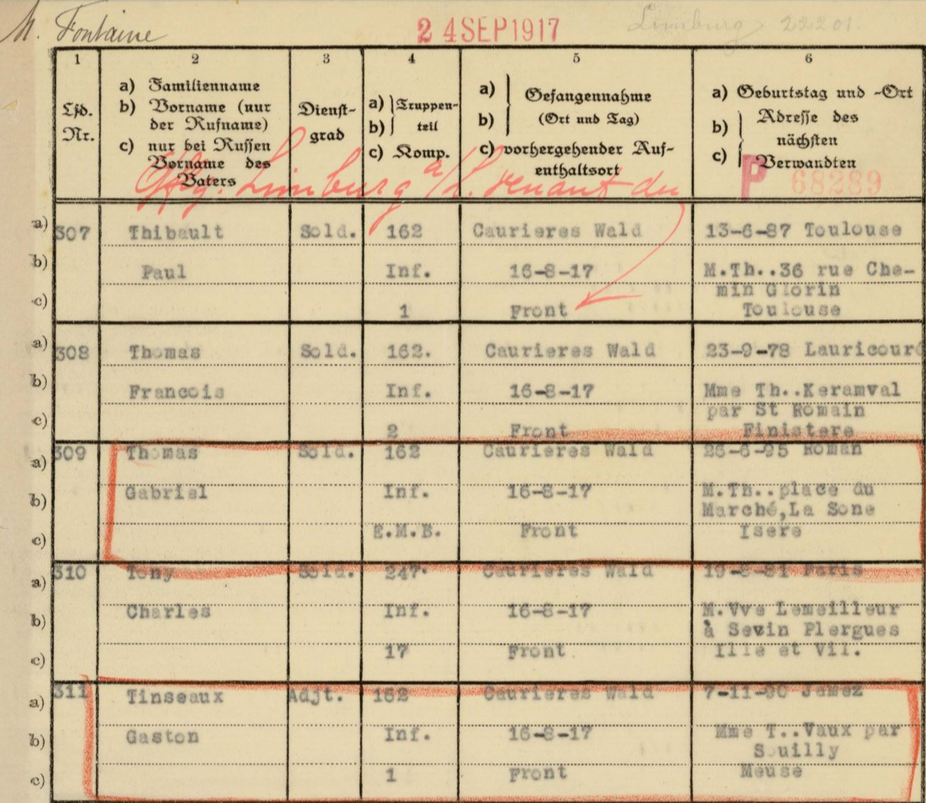 M. Fontaine
24 SEP 1917
Limburg 22201
1 2 3 4 5 6
Lfd. Nr.
a) Familienname
b) Vorname (nur der Rufname)
c) nur bei Russen Vorname des Vaters
Dienstgrad
a) b) Truppenteil
c) Komp.
a) b) Gefangennahme (Ort und Tag)
c) vorhergehender Aufenthaltsort
a) Geburtstag und -Ort
b) c) Adresse des nächsten Verwandten
Limburg a/L. venant du
P 68289
a) 307 Thibault Sold. 162 Caurieres Wald 13-6-87 Toulouse
b) Paul Inf. 16-8-17 M.Th..36 rue Che-
min Glorin
c) 1 Front Toulouse
a) 308 Thomas Sold. 162. Caurieres Wald 23-9-78 Lauricouré
b) Francois Inf. 16-8-17 Mme Th..Keramval
par St Romain
c) 2 Front Finistere
a) 309 Thomas Sold. 162 Caurieres Wald Roman
b) Gabriel Inf. 16-8-17 M.Th..place du
Marché,La Sone
c) E.M.B. Front Isere
a) 310 Tony Sold. 247. Caurieres Wald Paris
b) Charles Inf. 16-8-17 M.Vve Lemeilleur
à Sevin Plergues
c) 17 Front Ille et Vil.
a) 311 Tinseaux Adjt. 162 Caurieres Wald 7-11-90 Jemez
b) Gaston Inf. 16-8-17 Mme T..Vaux par
Souilly
c) 1 Front Meuse